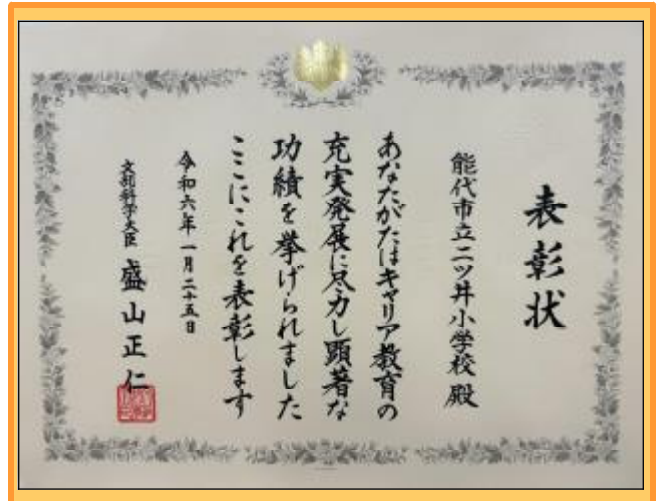 表彰状
能代市立二ツ井小学校 殿
あなたがたはキャリア教育の
充実発展に尽力し顕著な
功績を挙げられました
ここにこれを表彰します
令和六年一月二十五日
文部科学大臣 盛山正仁